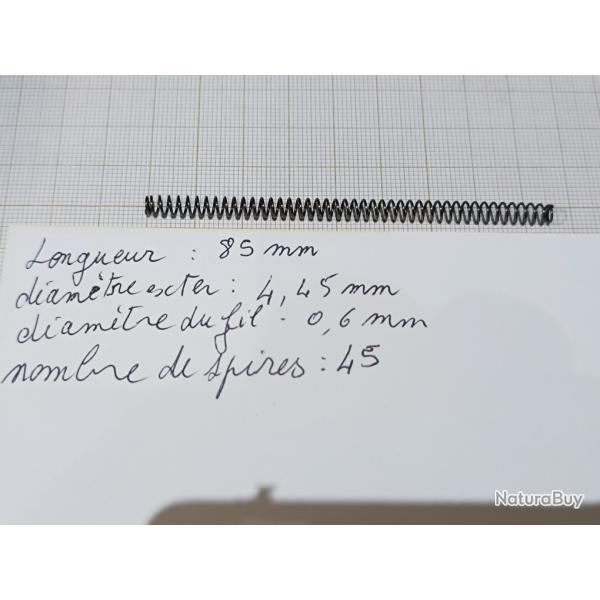 Longueur : 85 mm
diamètre exter : 4,45 mm
diamètre du fil - 0,6 mm
nombre de spires : 45
NaturaBuy